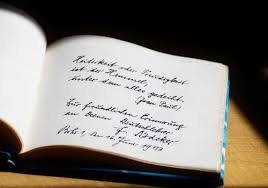 Heiterkeit oder Freudigkeit
ist der Himmel,
unter dem alles gedeiht.
(Jean Paul)
Zur freundlichen Erinnerung
an Deinen
F. Rädeker